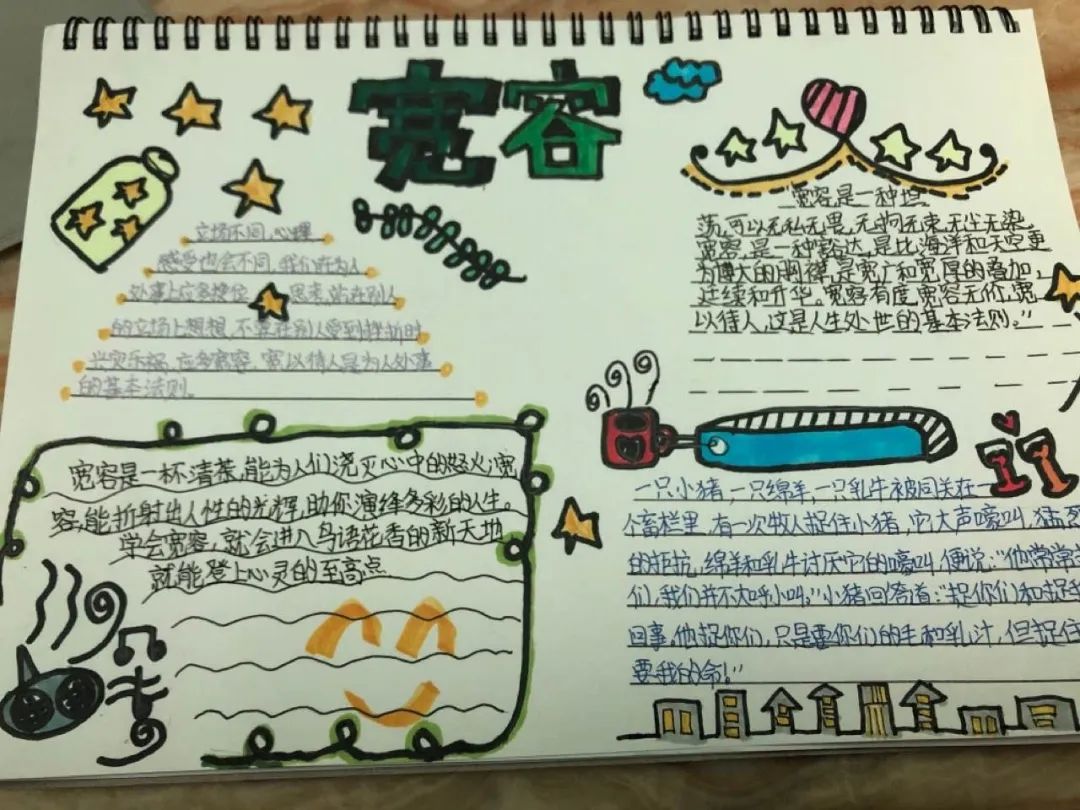 宽容
立场不同,心理
感受也会不同,我们在为人
处事上应多换位 思考,站在别人
的立场上想想,不要在别人受到挫折时
兴灾乐祸,应多宽容,宽以待人是为人处事
的基本法则。
宽容是一种坦
荡,可以无私无畏,无拘无束,无尘无染。
宽容,是一种豁达,是比海洋和天空更
为博大的胸襟,是宽广和宽厚的叠加,
延续和升华。宽容有度,宽容无价,宽
以待人,这是人生处世的基本法则。”
宽容是一杯清茶,能为人们浇灭心中的怒火;宽
容,能折射出人性的光辉,助你演绎多彩的人生。
学会宽容,就会进入鸟语花香的新天地
就能登上心灵的至高点
一只小猪,一只绵羊,一只乳牛被同关在一
个畜栏里,有一次牧人捉住小猪,它大声嚎叫,猛烈
的拒抗,绵羊和乳牛讨厌它的嚎叫,便说:“他常常
们,我们并不大呼小叫。”小猪回答道:“捉你们和捉我
回事,他捉你们,只是要你们的毛和乳汁,但捉住
要我的命!”